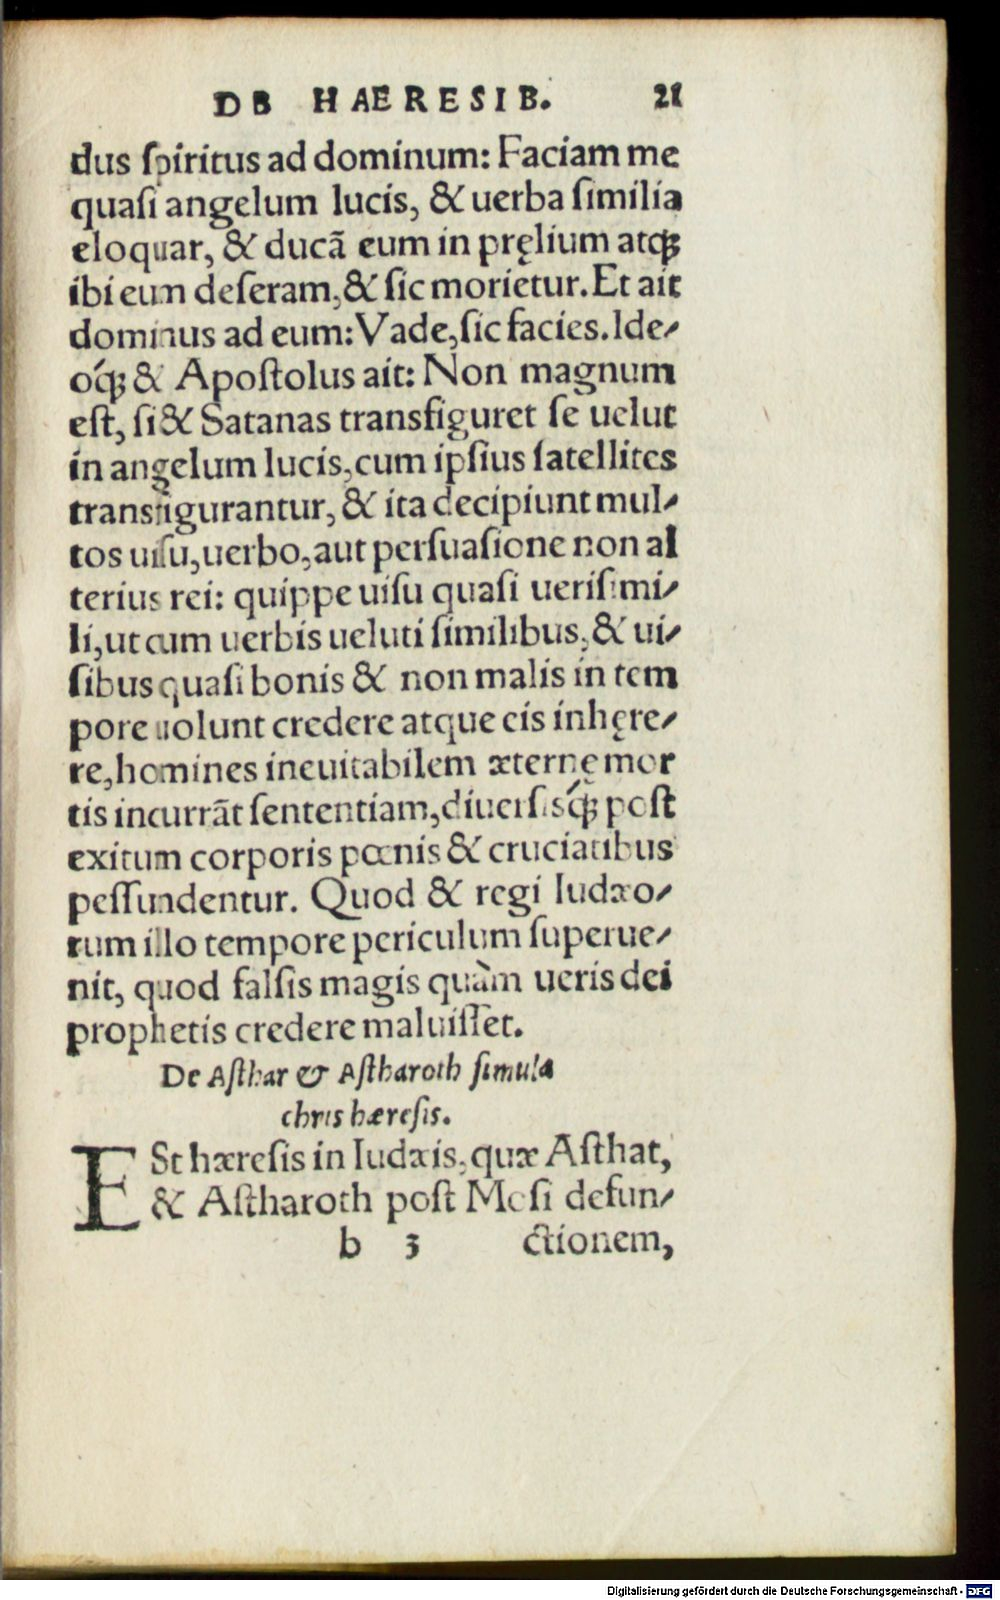 DE HAERESIB. 21
dus ſpiritus ad dominum: Faciam me
quaſi angelum lucis, & uerba ſimilia
eloquar, & ducā eum in pręlium atq́ꝫ
ibi eum deſeram, & ſic morietur. Et ait
dominus ad eum: Vade, ſic facies. Ide⸗
oq́ꝫ & Apoſtolus ait: Non magnum
eſt, ſi & Satanas transfiguret ſe uelut
in angelum lucis, cum ipſius ſatellites
transfigurantur, & ita decipiunt mul⸗
tos uiſu, uerbo, aut perſuaſione non al
terius rei: quippe uiſu quaſi ueriſimi⸗
li, ut cum uerbis ueluti ſimilibus, & ui⸗
ſibus quaſi bonis & non malis in tem
pore uolunt credere atque eis inhęre⸗
re, homines ineuitabilem æternę mor
tis incurrāt ſententiam, diuerſisq́ꝫ poſt
exitum corporis pœnis & cruciatibus
peſſundentur. Quod & regi Iudæo⸗
rum illo tempore periculum ſuperue⸗
nit, quod falſis magis quàm ueris dei
prophetis credere maluiſſet.
De Aſthar & Aſtharoth ſimula
chris hæreſis.
ESt hæreſis in Iudæis, quæ Aſthat,
& Aſtharoth poſt Moſi defun⸗
b 3 ctionem,
Digitalisierung gefördert durch die Deutsche Forschungsgemeinschaft - DFG